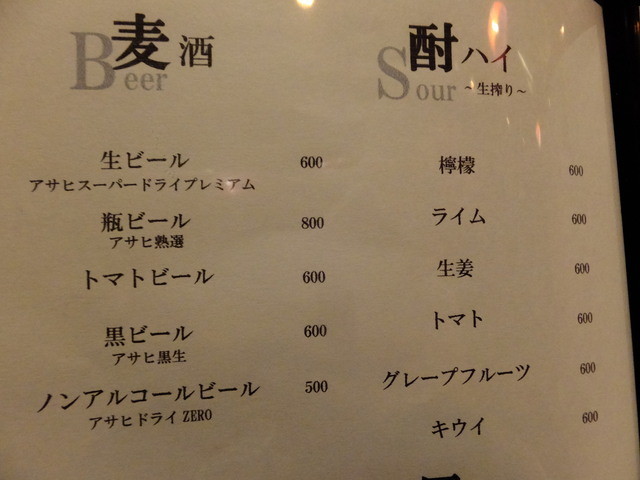 麦酒
Beer
生ビール 600
アサヒスーパードライプレミアム
瓶ビール 800
アサヒ熟選
トマトビール 600
黒ビール 600
アサヒ黒生
ノンアルコールビール 500
アサヒドライZERO
酎ハイ
Sour ~生搾り~
檸檬 600
ライム 600
生姜 600
トマト 600
グレープフルーツ 600
キウイ 600